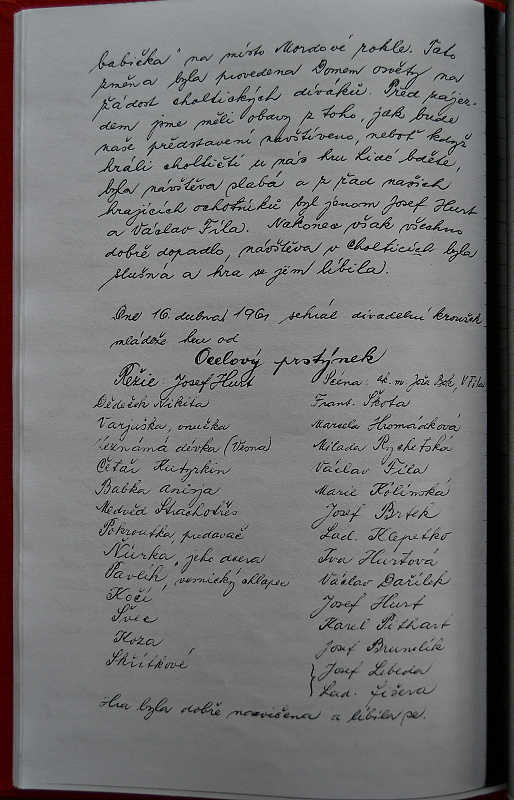 babička" na místo Mordové rokle. Tato
změna byla provedena Domem osvěty na
žádost choltických diváků. Před zájez-
dem jsme měli obavy z toho, jak bude
naše představení navštíveno, neboť když
hráli choltičtí u nás hru Lidé bděte,
byla návštěva slabá a z řad našich
hrajících ochotníků byl jenom Josef Hurt
a Václav Fila. Nakonec však všechno
dobře dopadlo, návštěva v Cholticích byla
slušná a hra se jim líbila.
Dne 16. dubna 1961 sehrál divadelní kroužek
mládeže hru od
Ocelový prstýnek
Režie: Josef Hurt Scéna: ak. m. Joža Bok, V Fila
Dědeček Nikita Frant. Škota
Varjuška, vnučka Marcela Hromádková
Neznámá dívka (Vesna) Milada Rychetská
Četař Václav Fila
Babka Anisja Marie Kolínská
Medvěd Strachotřes Josef Brtek
Pokroutka, pudavač Lad. Klepetko
Ňurka, jeho dcera Iva Hurtová
Pavlík, vesnický chlapec Václav Dařílek
Kočí Josef Hurt
Švec Karel Pithart
Koza Josef Brumlík
Skřítkové Josef Lebeda
Lad. Fišera
Hra byla dobře nacvičena a líbila se.